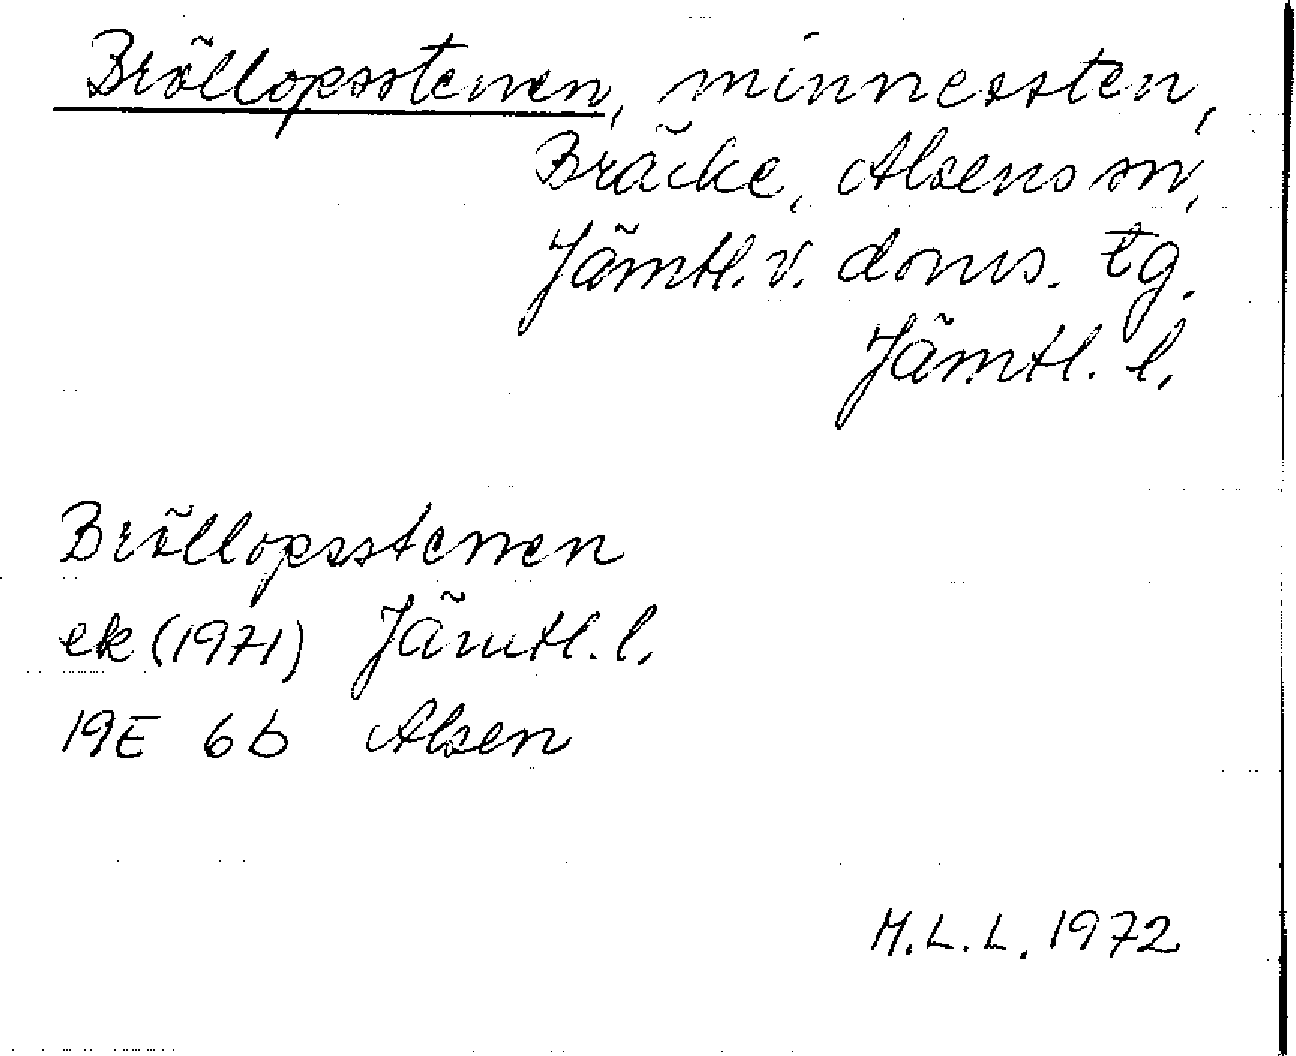 Bröllopsstenen, minnessten,
Bräcke, Alsens sn,
Jämtl. v. doms. tg.
Jämtl. l.
Bröllopsstenen
ek (1971) Jämtl. l.
19E 6b Alsen
M.L.L. 1972